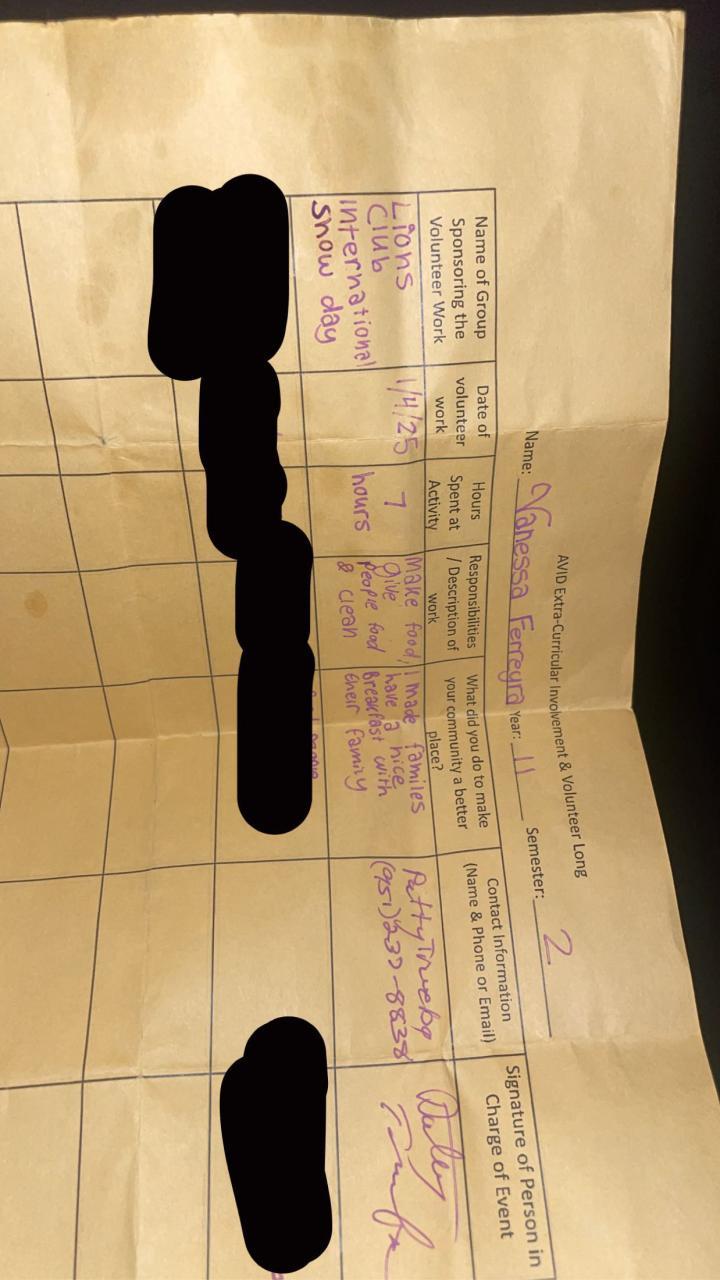 AVID Extra-Curricular Involvement & Volunteer Long
Name: Vanessa Ferreyra Year: 11 Semester: 2
Name of Group
Sponsoring the
Volunteer Work
Date of
volunteer
work
Hours
Spent at
Activity
Responsibilities
/ Description of
work
What did you do to make
your community a better
place?
Contact Information
(Name & Phone or Email)
Signature of Person in
Charge of Event
Lions
Club
International
Snow day
1/4/25
7
hours
Make food,
give
people food
& clean
I made familes
have a nice
Breakfast with
their family
Patty
(951)232-8838